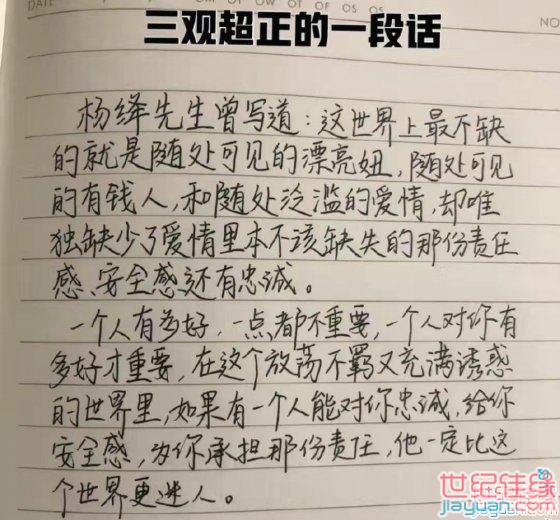 DATE
NO
三观超正的一段话
杨绛先生曾写道：这世界上最不缺
的就是随处可见的漂亮妞，随处可见
的有钱人，和随处泛滥的爱情，却唯
独缺少了爱情里本不该缺失的那份责任
感、安全感还有忠诚。
一个人有多好，一点都不重要，一个人对你有
多好才重要，在这个放荡不羁又充满诱惑
的世界里，如果有一个人能对你忠诚，给你
安全感，为你承担那份责任，他一定比这
个世界更迷人。
世纪佳缘
jiayuan.com